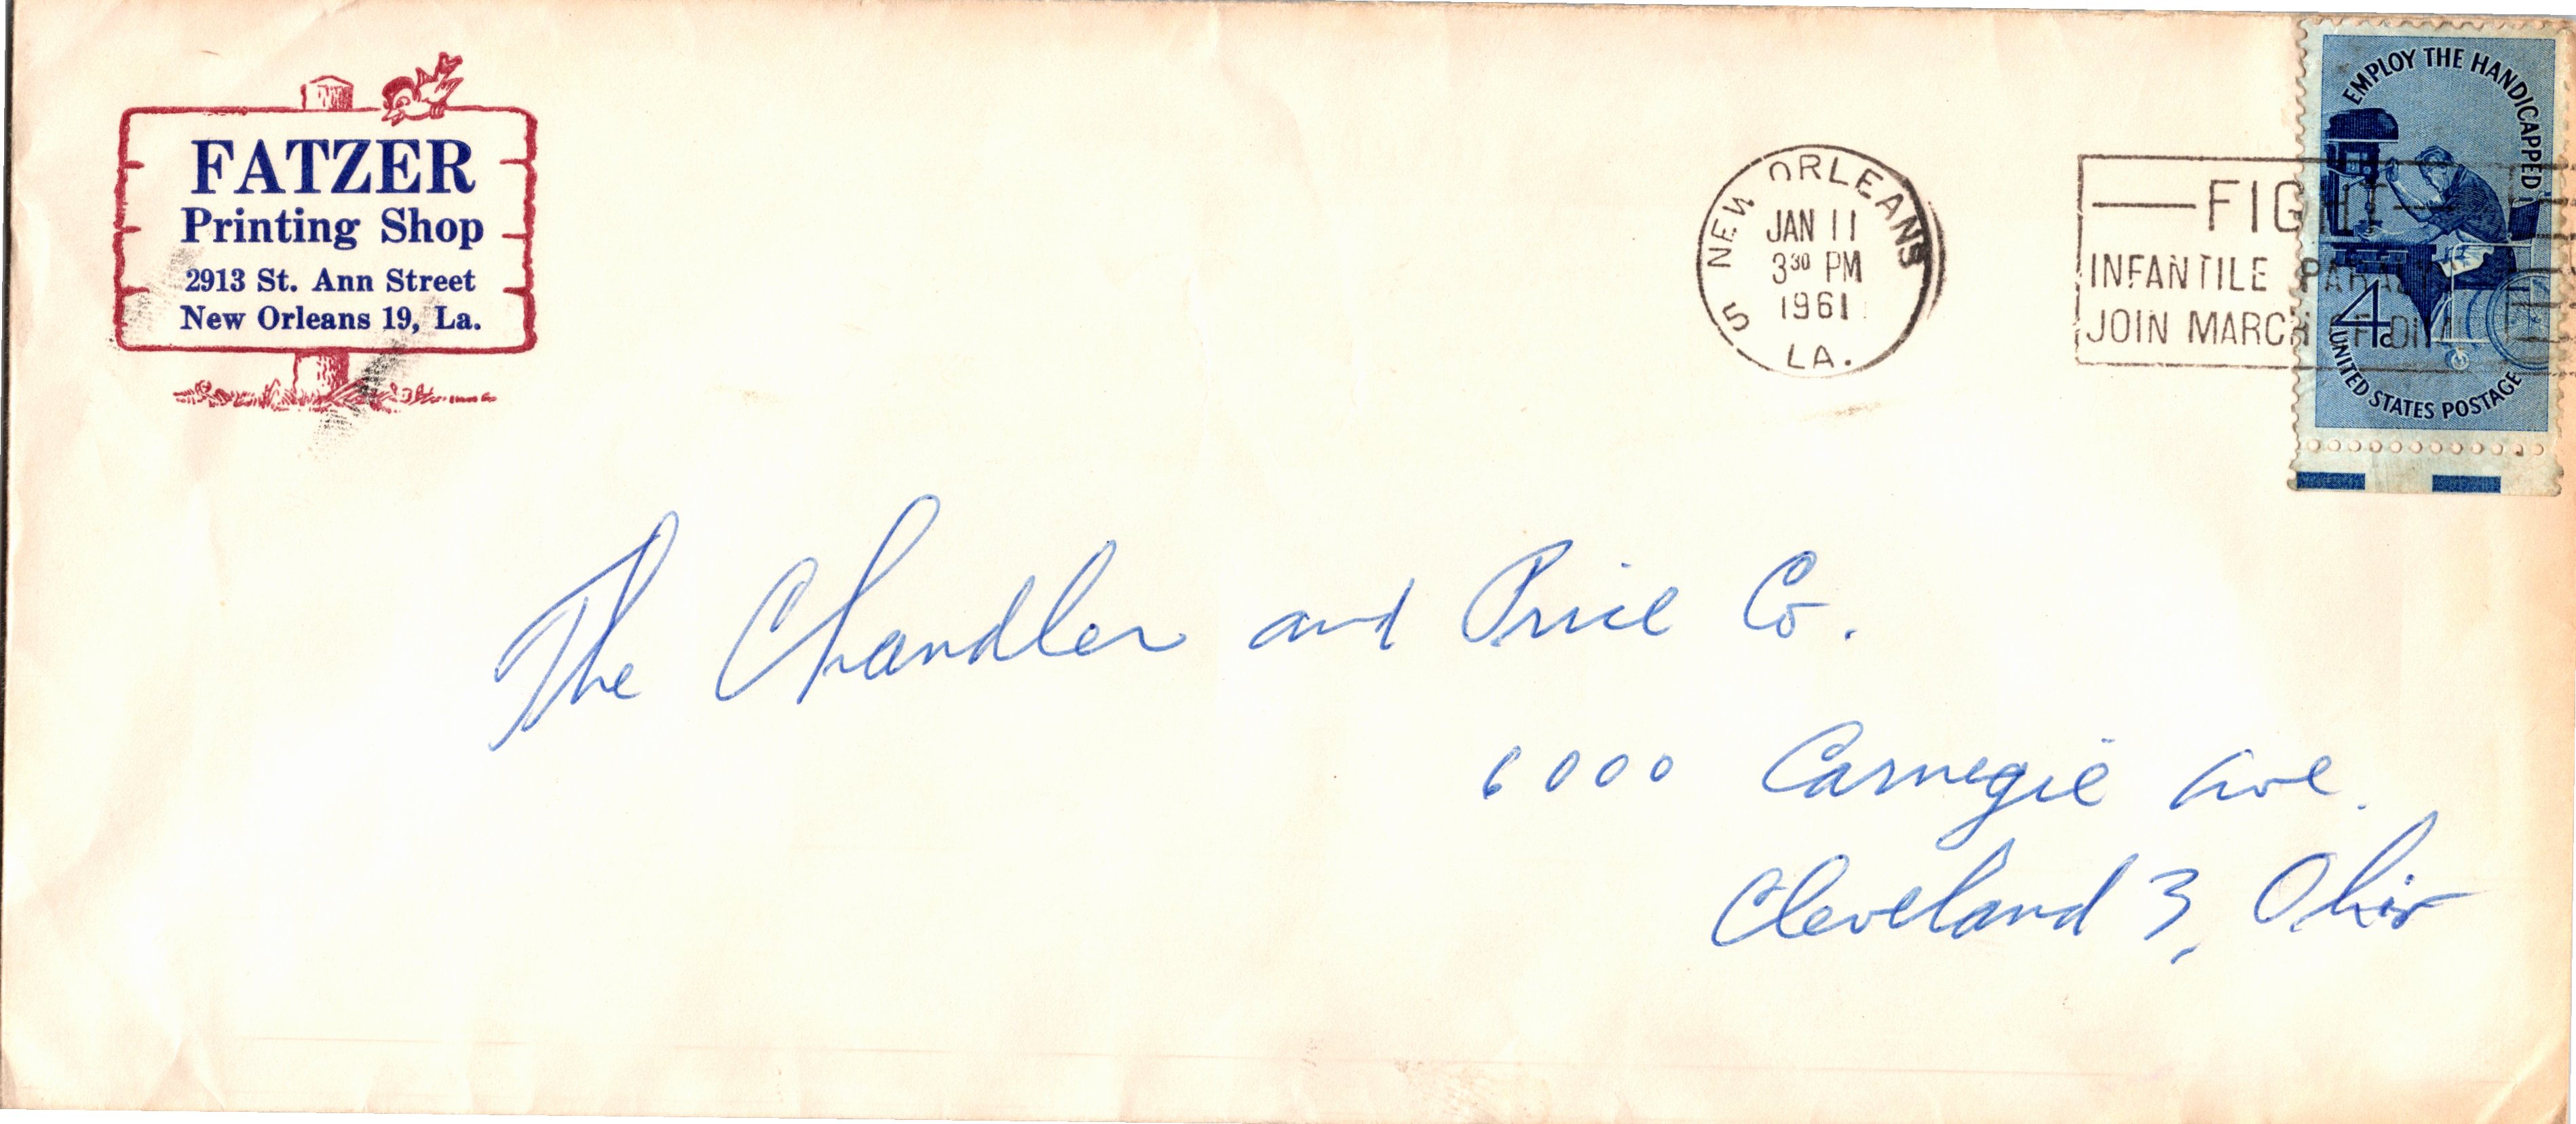 FATZER
Printing Shop
2913 St. Ann Street
New Orleans 19, La.
NEW ORLEANS
JAN 11
3 30 PM
1961
5
LA.
FIGHT
INFANTILE PARALYSIS
JOIN MARCH OF DIMES
EMPLOY THE HANDICAPPED
4c
UNITED STATES POSTAGE
The Chandler and Price Co.
6000 Carnegie Ave.
Cleveland 3, Ohio